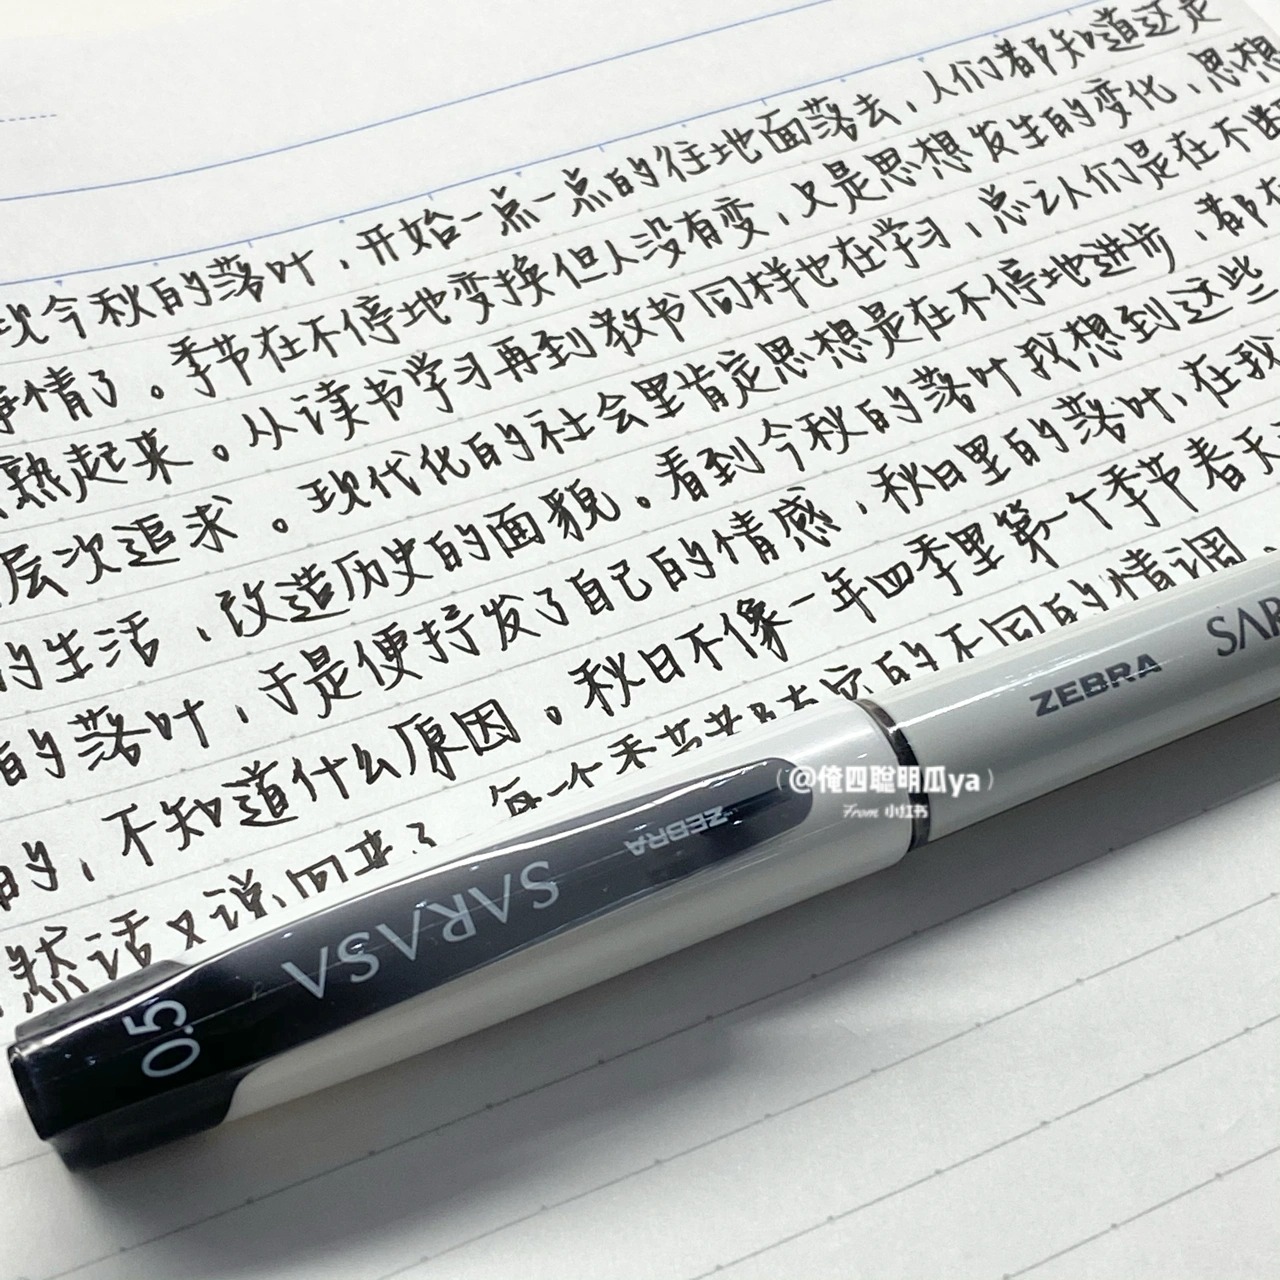 现今秋的落叶,开始一点一点的往地面落去,人们都知道这是
事情了。季节在不停地变换但人没有变,又是思想发生的变化,思想
熟起来。从读书学习再到教书同样也在学习,总之人们是在不断
层次追求。现代化的社会里肯定思想是在不停地进步,都在
的生活,改造历史的面貌。看到今秋的落叶我想到这些
的落叶,于是便抒发了自己的情感,秋日里的落叶,在我
的,不知道什么原因。秋日不像一年四季里第一个季节春天
然话又说回来了,每一个季节都有它的不同的情调,
ZEBRA SAR
ZEBRA
SARASA
0.5
@俺四聪明瓜ya
From 小红书